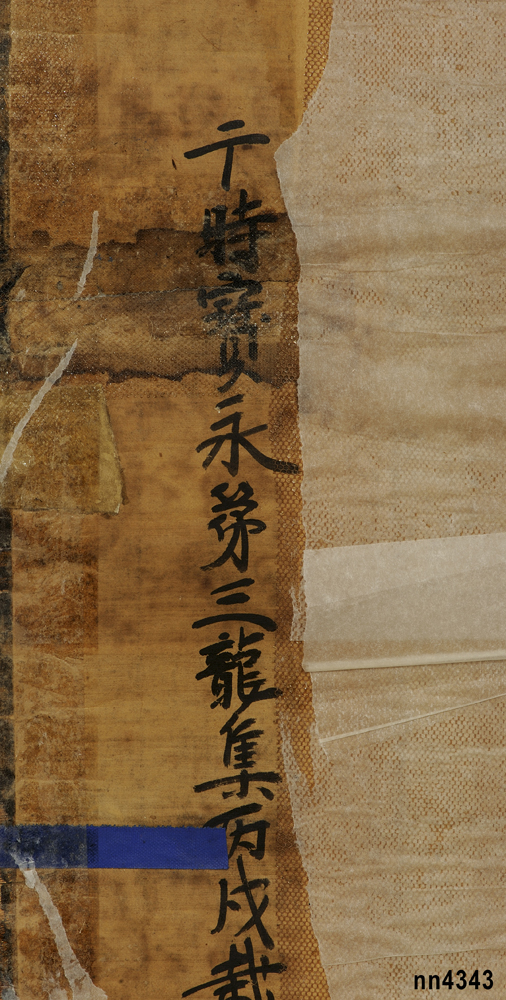 于時寳永第三龍集丙戌載
nn4343